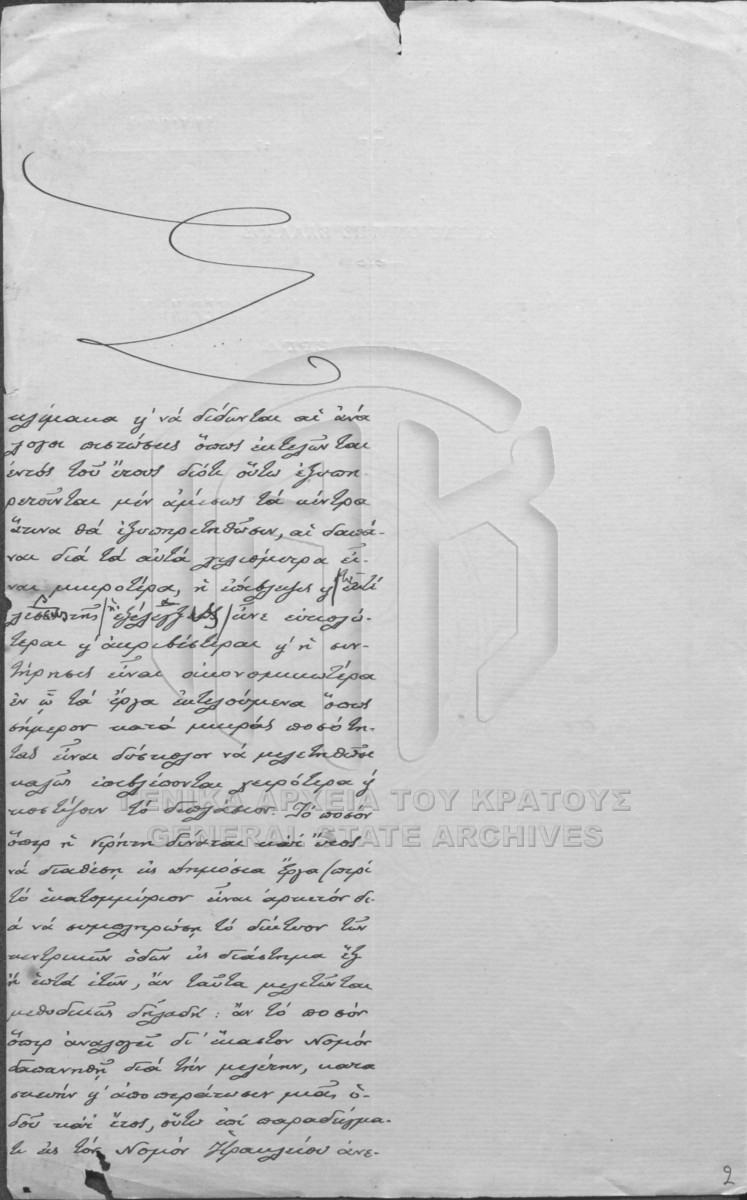 κλίμακα κ' νά δίδωνται αἱ ἀνά
λογοι πιστώσεις ὅπως ἐκτελῶνται
ἐντός τοῦ ἔτους διότι οὕτω ἐξυπη-
ρετοῦνται μέν ἀμέσως τά κέντρα
ἅτινα θά ἐξυπηρετηθῶσιν, αἱ δαπά-
ναι διά τά αὐτά χιλιόμετρα εἶ-
ναι μικροτέρα, ἡ ἐπίβλεψις κ'
εὐκολώ-
τεραι κ' ἀκριβέστεραι κ' ἡ συν-
τήρησις εἶναι οἰκονομικωτέρα
ἐν ᾧ τά ἔργα ἐκτελούμενα ὅπως
σήμερον κατά μικράς ποσότη-
τας εἶναι δύσκολον νά μελετηθῶσι
καλῶς ἐπιβλέπονται χειρότερα κ'
κοστίζουν τό διπλάσιον. Τό ποσόν
ὅπερ ἡ Κρήτη δύναται κατ' ἔτος
νά διαθέσῃ εἰς δημόσια ἔργα (περί
τό ἑκατομμύριον εἶναι ἀρκετόν δι-
ά νά συμπληρώσῃ τό δίκτυον τῶν
κεντρικῶν ὁδῶν εἰς διάστημα ἕξ
ἤ ἑπτά ἐτῶν, ἄν ταῦτα μελετῶνται
μεθοδικῶς δηλαδή: ἄν τό ποσόν
ὅπερ ἀναλογεῖ δι' ἕκαστον Νομόν
δαπανηθῇ διά τήν μελέτην, κατα
σκευήν κ' ἀποπεράτωσιν μιᾶς ὁ-
δοῦ κατ' ἔτος, οὕτω ἐπί παραδείγμα-
τι εἰς τόν Νομόν Ἡρακλείου ἀνε-
2
ΓΕΝΙΚΑ ΑΡΧΕΙΑ ΤΟΥ ΚΡΑΤΟΥΣ
GENERAL STATE ARCHIVES